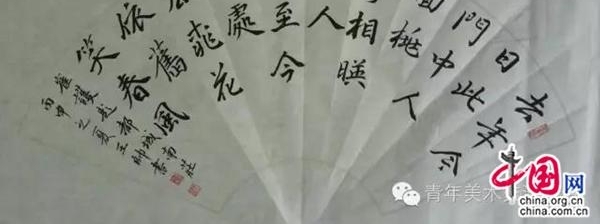 去年今
日此
門中人
面桃
相暎
人
至今
處桃花
舊風
依春
笑
崔護題都城南莊
丙申之夏王帥書
青年美术
中国网
china.org.cn
china.com.cn